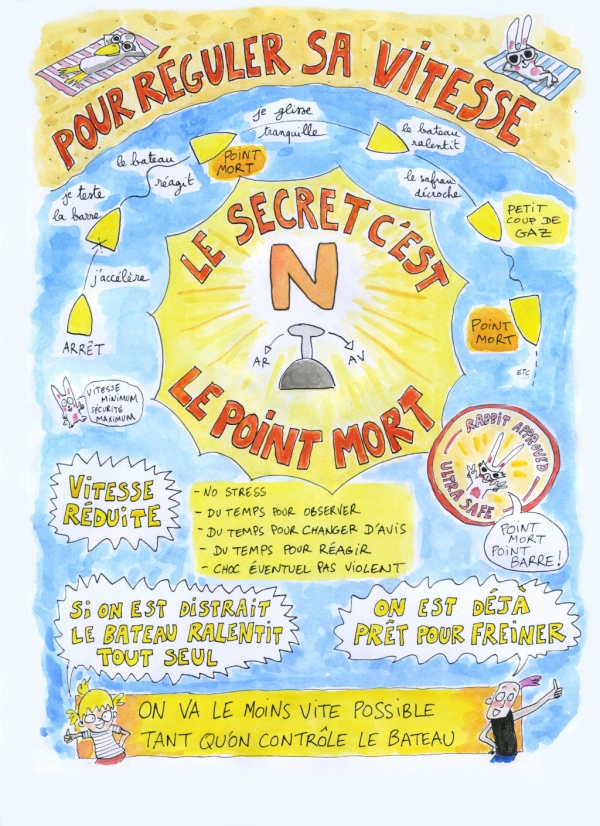 POUR RÉGULER SA VITESSE
ARRÊT
j'accélère
je teste
la barre
le bateau
réagit
POINT
MORT
je glisse
tranquille
le bateau
ralentit
le safran
décroche
PETIT
COUP DE
GAZ
POINT
MORT
ETC...
LE SECRET C'EST
N
AR
AV
LE POINT MORT
VITESSE
MINIMUM
SÉCURITÉ
MAXIMUM
RABBIT APPROVED
ULTRA SAFE
POINT
MORT
POINT
BARRE!
VITESSE
RÉDUITE
- NO STRESS
- DU TEMPS POUR OBSERVER
- DU TEMPS POUR CHANGER D'AVIS
- DU TEMPS POUR RÉAGIR
- CHOC ÉVENTUEL PAS VIOLENT
SI ON EST DISTRAIT
LE BATEAU RALENTIT
TOUT SEUL
ON EST DÉJÀ
PRÊT POUR FREINER
ON VA LE MOINS VITE POSSIBLE
TANT QU'ON CONTRÔLE LE BATEAU